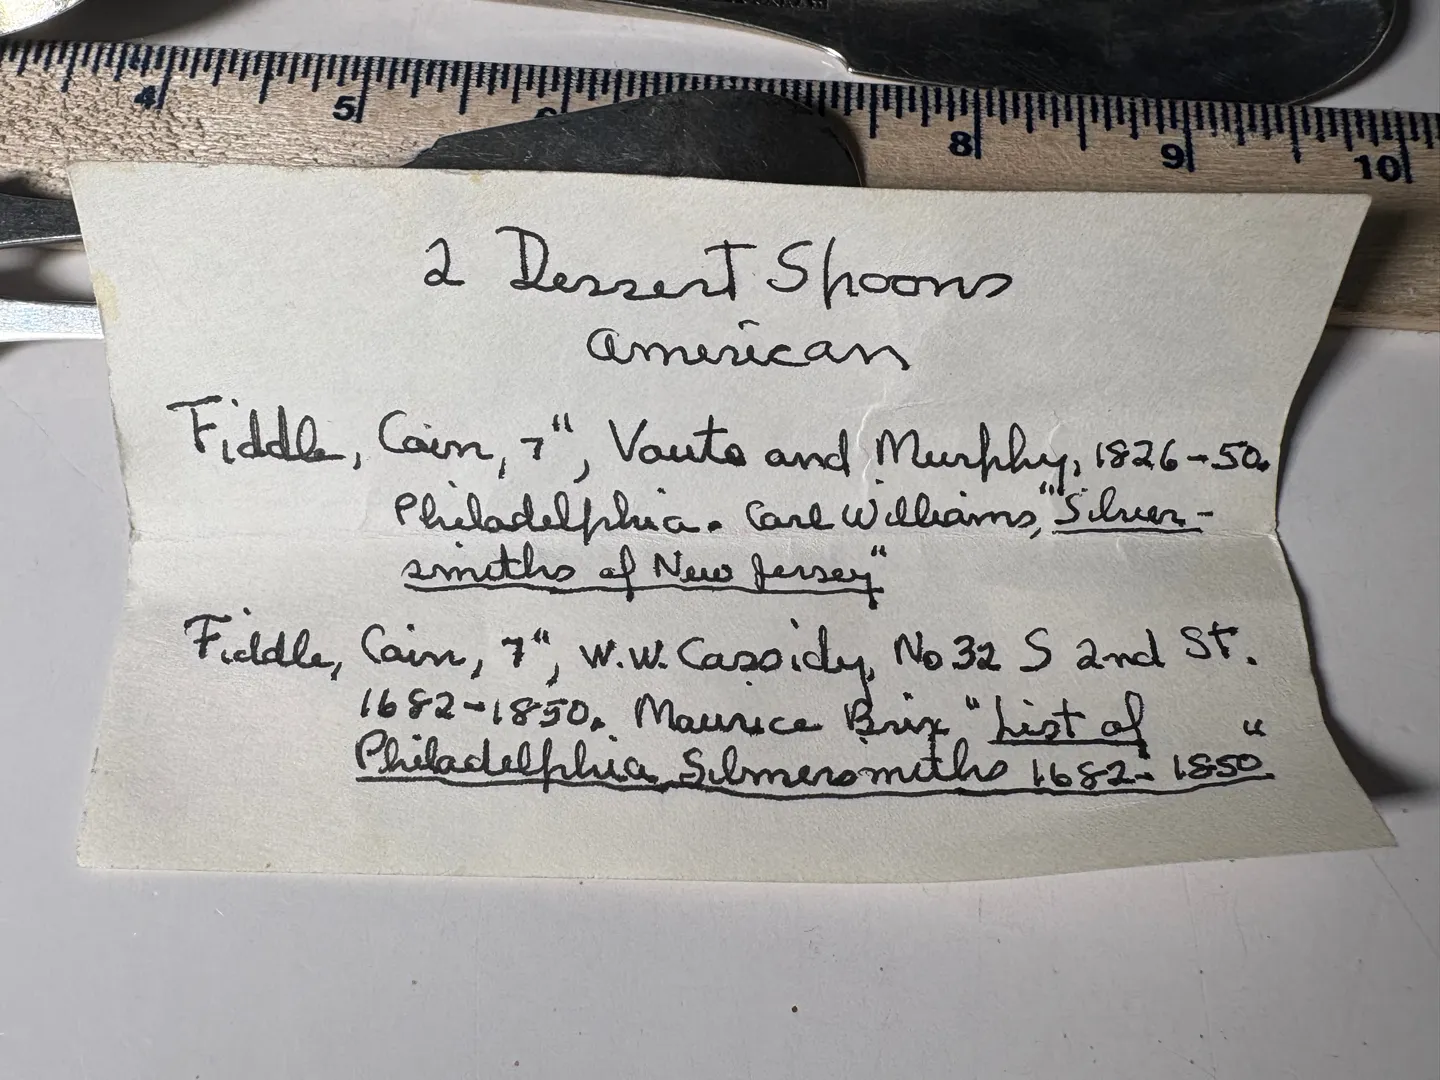 4 5 6 8 9 10
2 Dessert Spoons
American
Fiddle, Coin, 7", Vauto and Murphy, 1826-50.
Philadelphia. Carl Williams, "Silver-
smiths of New Jersey"
Fiddle, Coin, 7", W.W. Cassidy, No 32 S 2nd St.
1682-1850. Maurice Brix "List of
Philadelphia Silmersmiths 1682-1850"